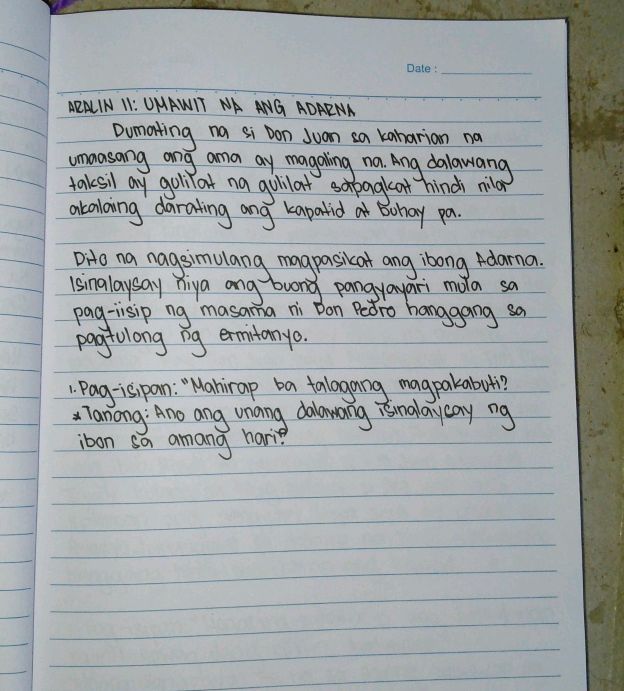 Date :
ARALIN 11: UMAWIT NA ANG ADARNA
Dumating na si Don Juan sa kaharian na
umaasang ang ama ay magaling na. Ang dalawang
taksil ay gulilat na gulilat sapagkat hindi nila
akalaing darating ang kapatid at buhay pa.
Dito na nagsimulang magpasikat ang ibong Adarna.
Isinalaysay niya ang buong pangyayari mula sa
pag-iisip ng masama ni Don Pedro hanggang sa
pagtulong ng ermitanyo.
1. Pag-isipan: "Mahirap ba talagang magpakabuti?
* Tanong: Ano ang unang dalawang isinalaysay ng
ibon sa amang hari?